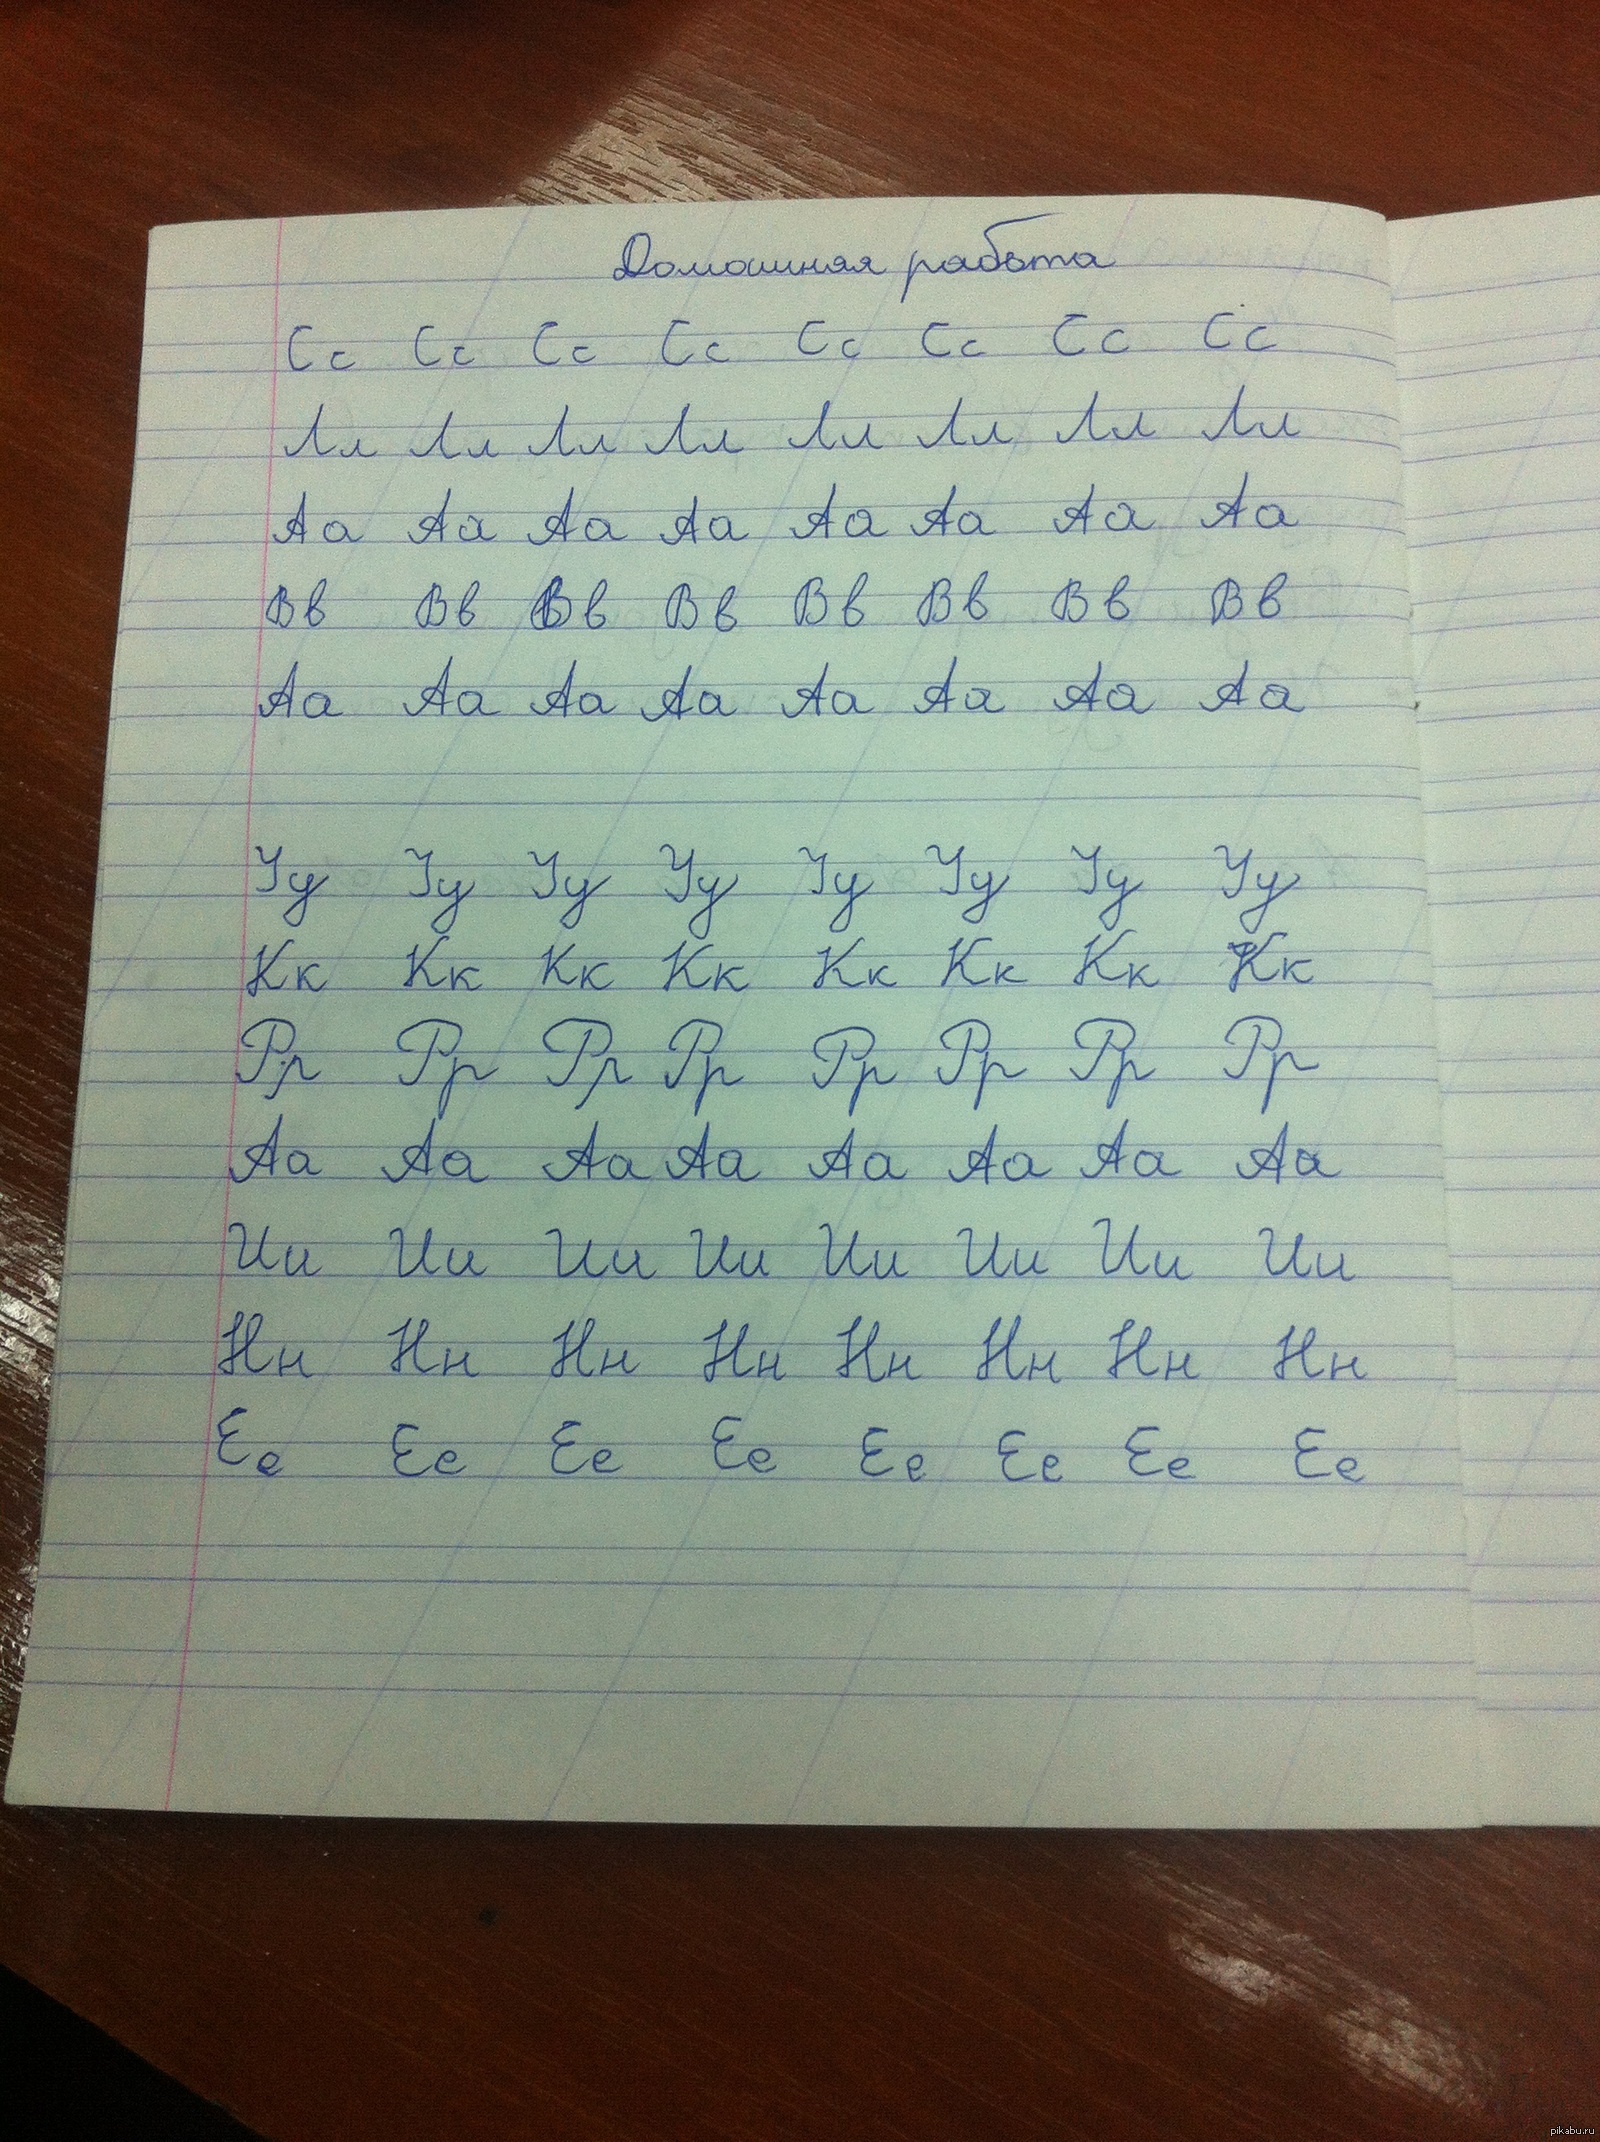 Домашняя работа
Сс Сс Сс Сс Сс Сс Сс Сс
Лл Лл Лл Лл Лл Лл Лл Лл
Аа Аа Аа Аа Аа Аа Аа Аа
Вв Вв Вв Вв Вв Вв Вв Вв
Аа Аа Аа Аа Аа Аа Аа Аа
Уу Уу Уу Уу Уу Уу Уу Уу
Кк Кк Кк Кк Кк Кк Кк Кк
Рр Рр Рр Рр Рр Рр Рр Рр
Аа Аа Аа Аа Аа Аа Аа Аа
Ии Ии Ии Ии Ии Ии Ии Ии
Нн Нн Нн Нн Нн Нн Нн Нн
Ее Ее Ее Ее Ее Ее Ее Ее
pikabu.ru